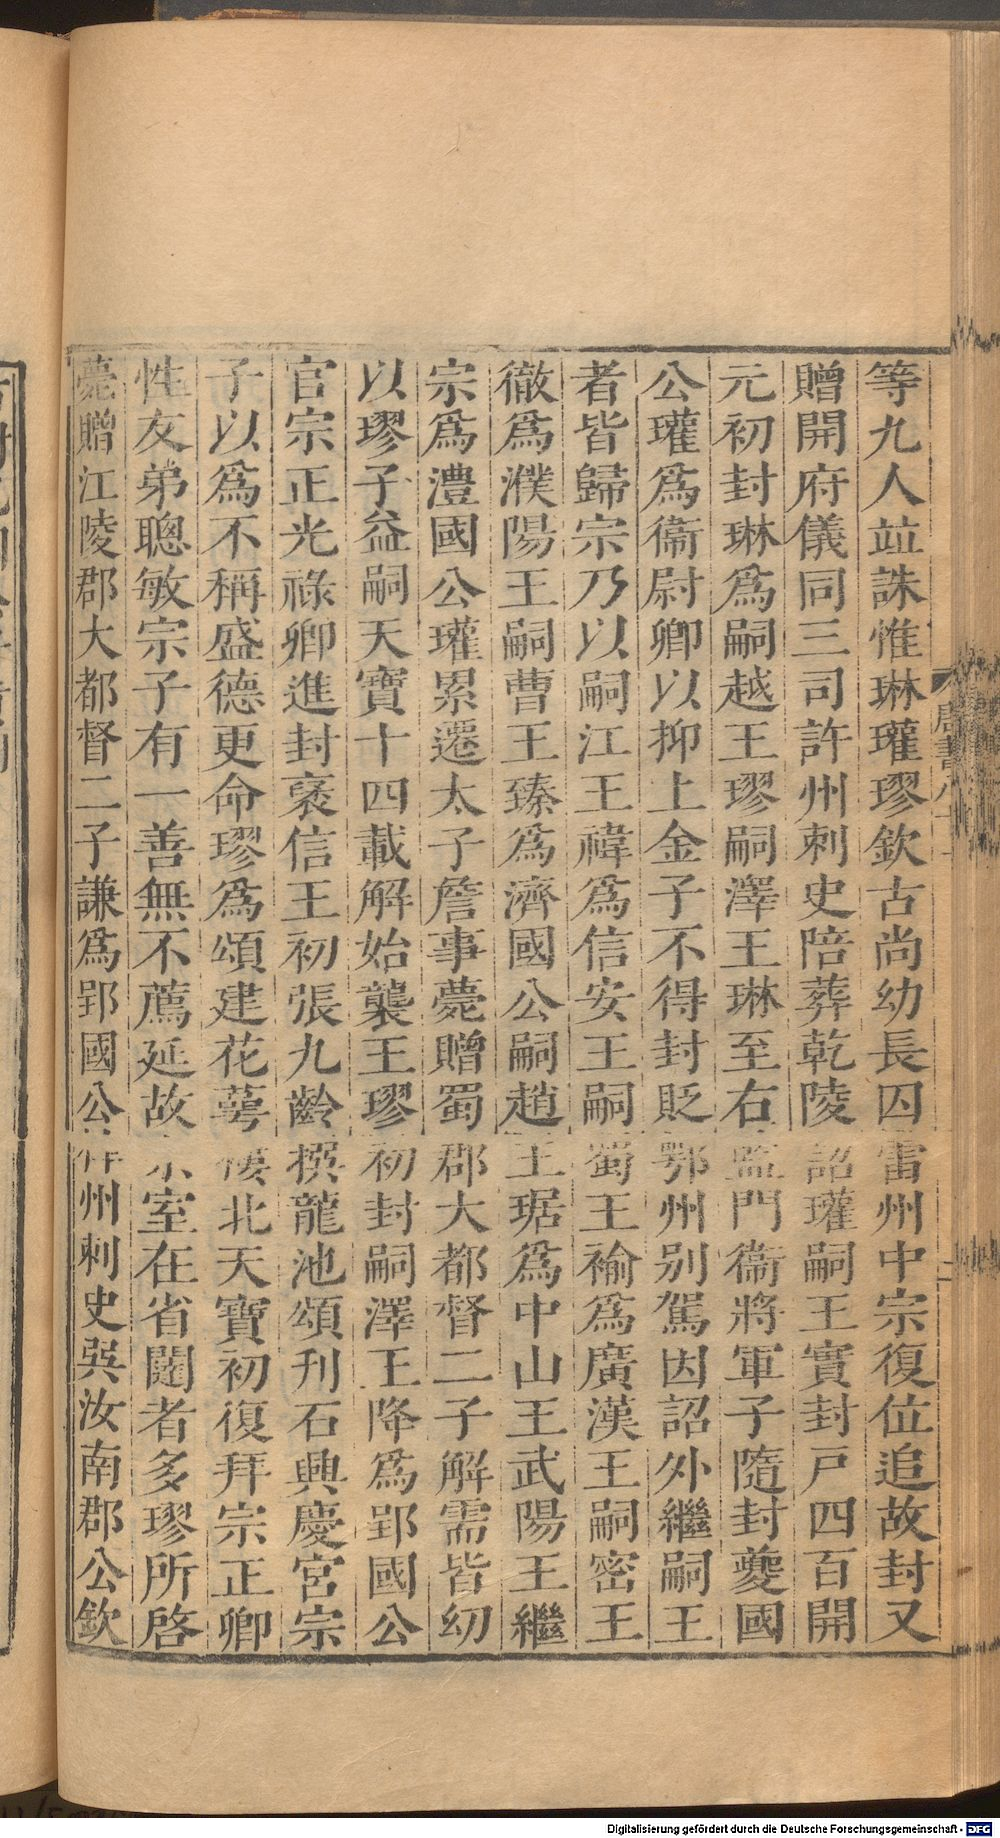 等九人竝誅惟琳瓘璆欽古尚幼長囚雷州中宗復位追故封又
贈開府儀同三司許州刺史陪葬乾陵詔瓘嗣王實封戸四百開
元初封琳爲嗣越王璆嗣澤王琳至右監門衞將軍子隨封夔國
公瓘爲衞尉卿以抑上金子不得封貶鄂州别駕因詔外繼嗣王
者皆歸宗乃以嗣江王禕爲信安王嗣蜀王褕爲廣漢王嗣密王
徹爲濮陽王嗣曹王臻爲濟國公嗣趙王琚爲中山王武陽王繼
宗爲澧國公瓘累遷太子詹事薨贈蜀郡大都督二子解需皆幼
以璆子益嗣天寶十四載解始襲王璆初封嗣澤王降爲郢國公
官宗正光祿卿進封褒信王初張九齡撰龍池頌刊石興慶宮宗
子以爲不稱盛德更命璆爲頌建花萼樓北天寶初復拜宗正卿
性友弟聰敏宗子有一善無不薦延故宗室在省闥者多璆所啓
薨贈江陵郡大都督二子謙爲郢國公梓州刺史吳汝南郡公欽
唐書八十
Digitalisierung gefördert durch die Deutsche Forschungsgemeinschaft - DFG